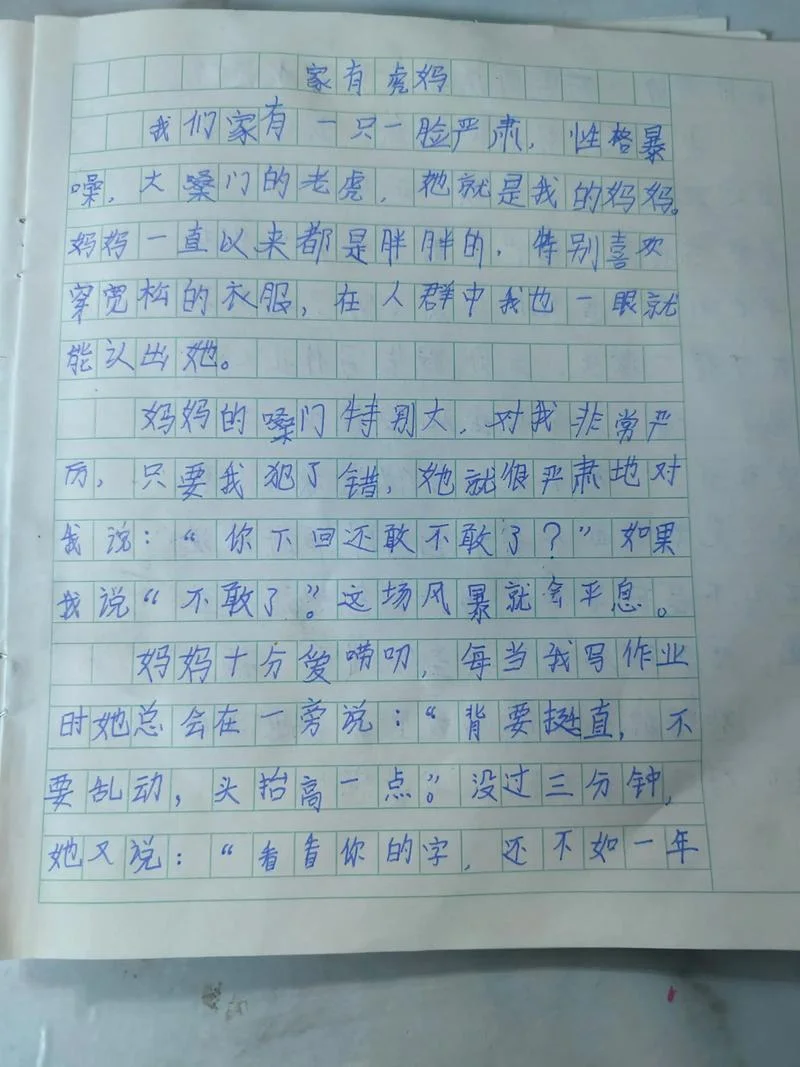 家有虎妈
我们家有一只一脸严肃，性格暴
噪，大嗓门的老虎，她就是我的妈妈。
妈妈一直以来都是胖胖的，特别喜欢
穿宽松的衣服，在人群中我也一眼就
能认出她。
妈妈的嗓门特别大，对我非常严
厉，只要我犯了错，她就很严肃地对
我说：“你下回还敢不敢了？”如果
我说“不敢了”。这场风暴就会平息。
妈妈十分爱唠叨，每当我写作业
时她总会在一旁说：“背要挺直，不
要乱动，头抬高一点”。没过三分钟，
她又说：“看看你的字，还不如一年